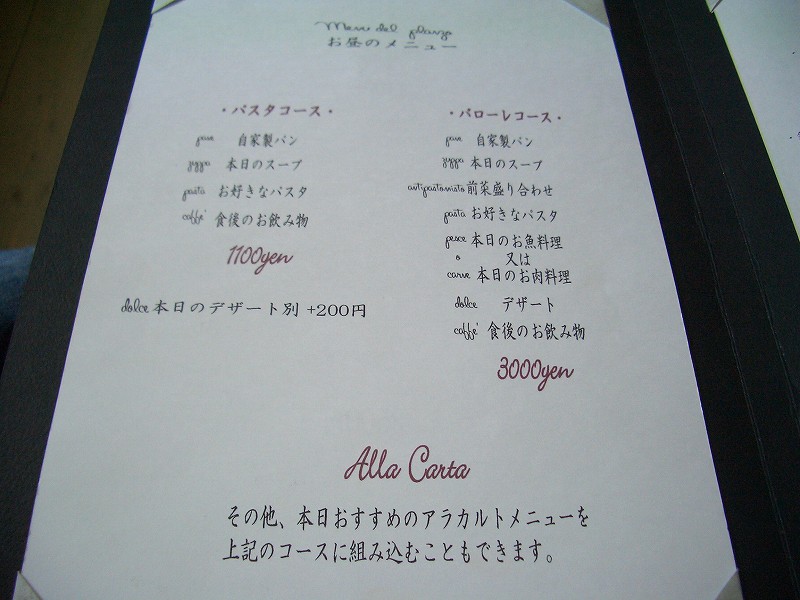 Menu del pranzo
お昼のメニュー
・パスタコース・
pane 自家製パン
zuppa 本日のスープ
pasta お好きなパスタ
caffe' 食後のお飲み物
1100yen
dolce 本日のデザート別 +200円
・パローレコース・
pane 自家製パン
zuppa 本日のスープ
antipastomisto 前菜盛り合わせ
pasta お好きなパスタ
pesce 本日のお魚料理
o 又は
carne 本日のお肉料理
dolce デザート
caffe' 食後のお飲み物
3000yen
Alla Carta
その他、本日おすすめのアラカルトメニューを
上記のコースに組み込むこともできます。